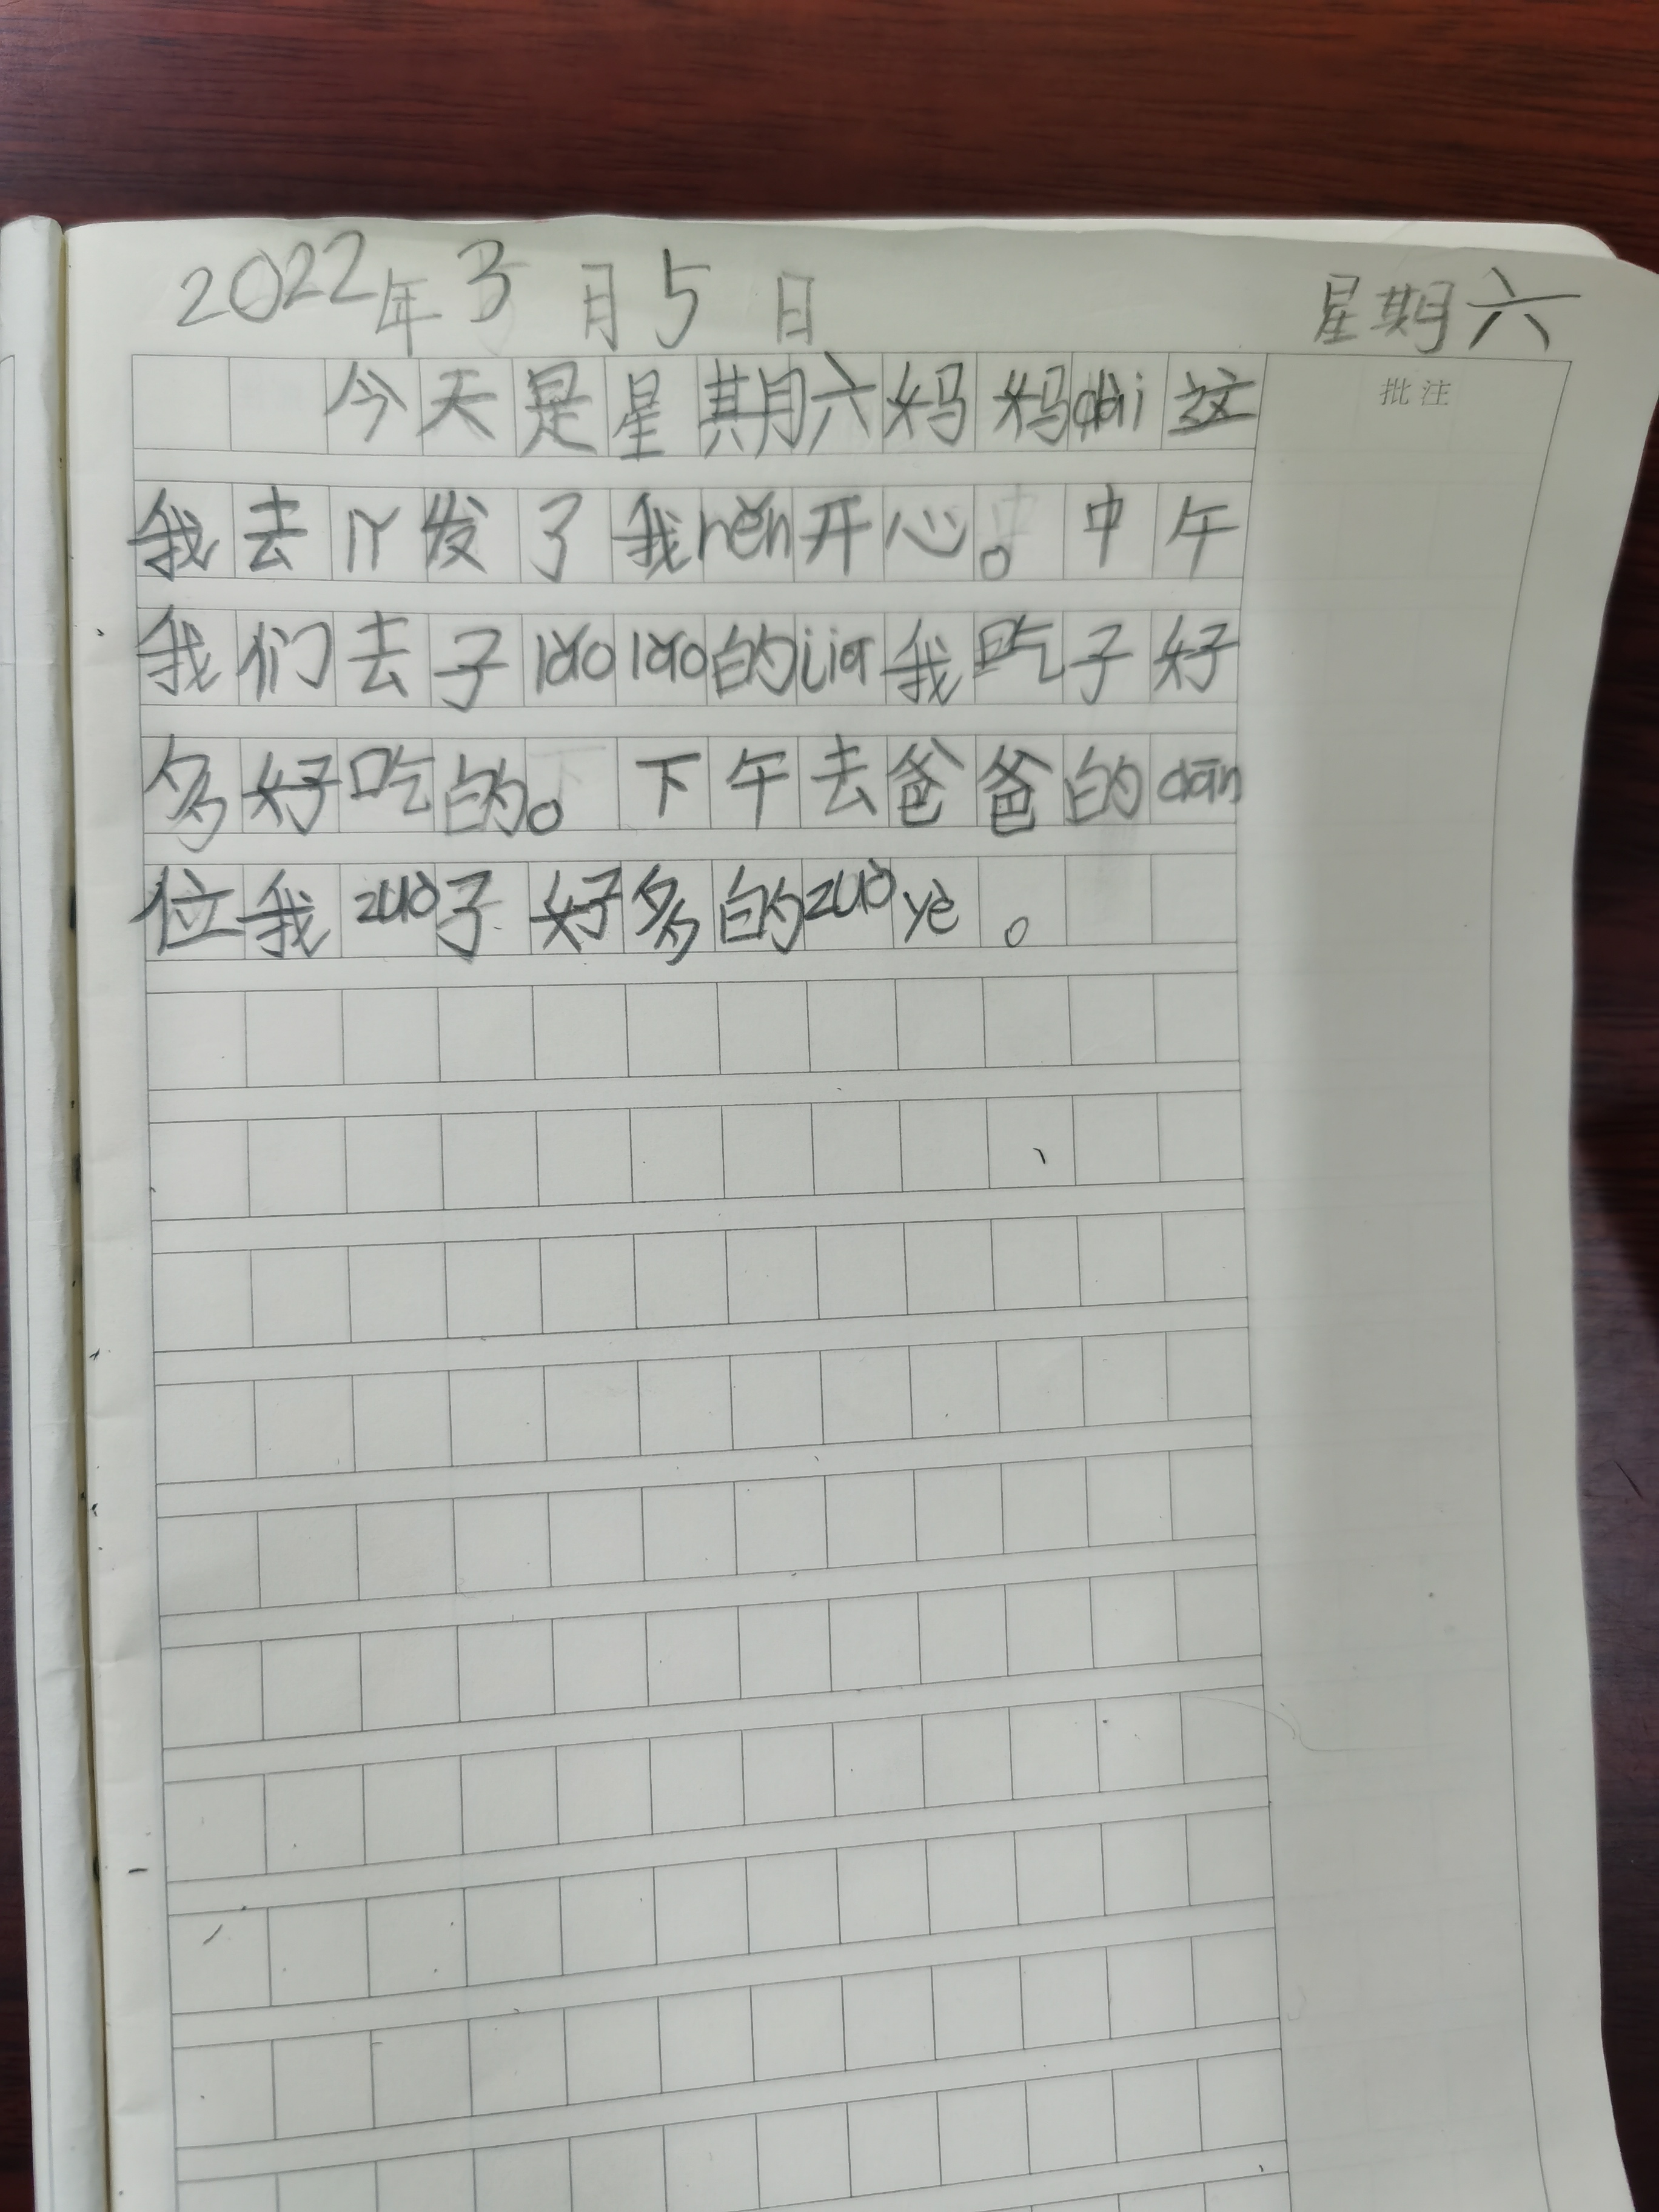 2022年3月5日 星期六
今天是星期六妈妈dài这
批注
我去丫发了我hěn开心。中午
我们去子lǎolǎo的jiā我吃子好
多好吃的。下午去爸爸的dān
位我zuò子好多的zuòyè。